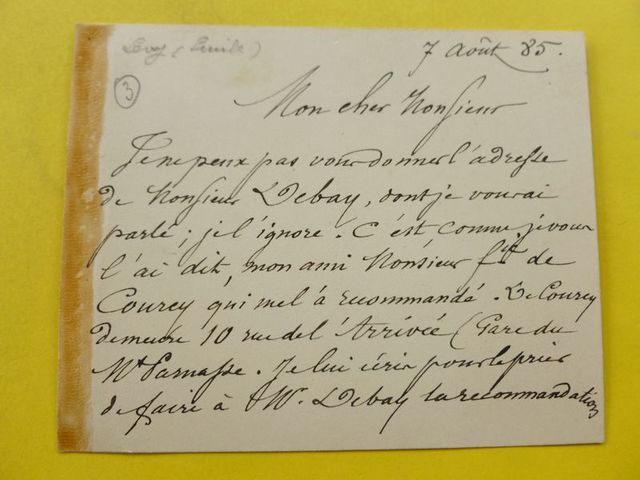 Levy (Emile)
7 Août 85.
3
Mon cher Monsieur
Je ne peux pas vous donner l'adresse
de Monsieur Debay, dont je vous ai
parlé ; je l'ignore. C'est comme je vous
l'ai dit, mon ami Monsieur de
Courcy qui me l'a recommandé. De Courcy
demeure 10 rue de l'Arrivée (Gare du
Mt Parnasse. Je lui écris pour le prier
de faire à Mr. Debay la recommandation